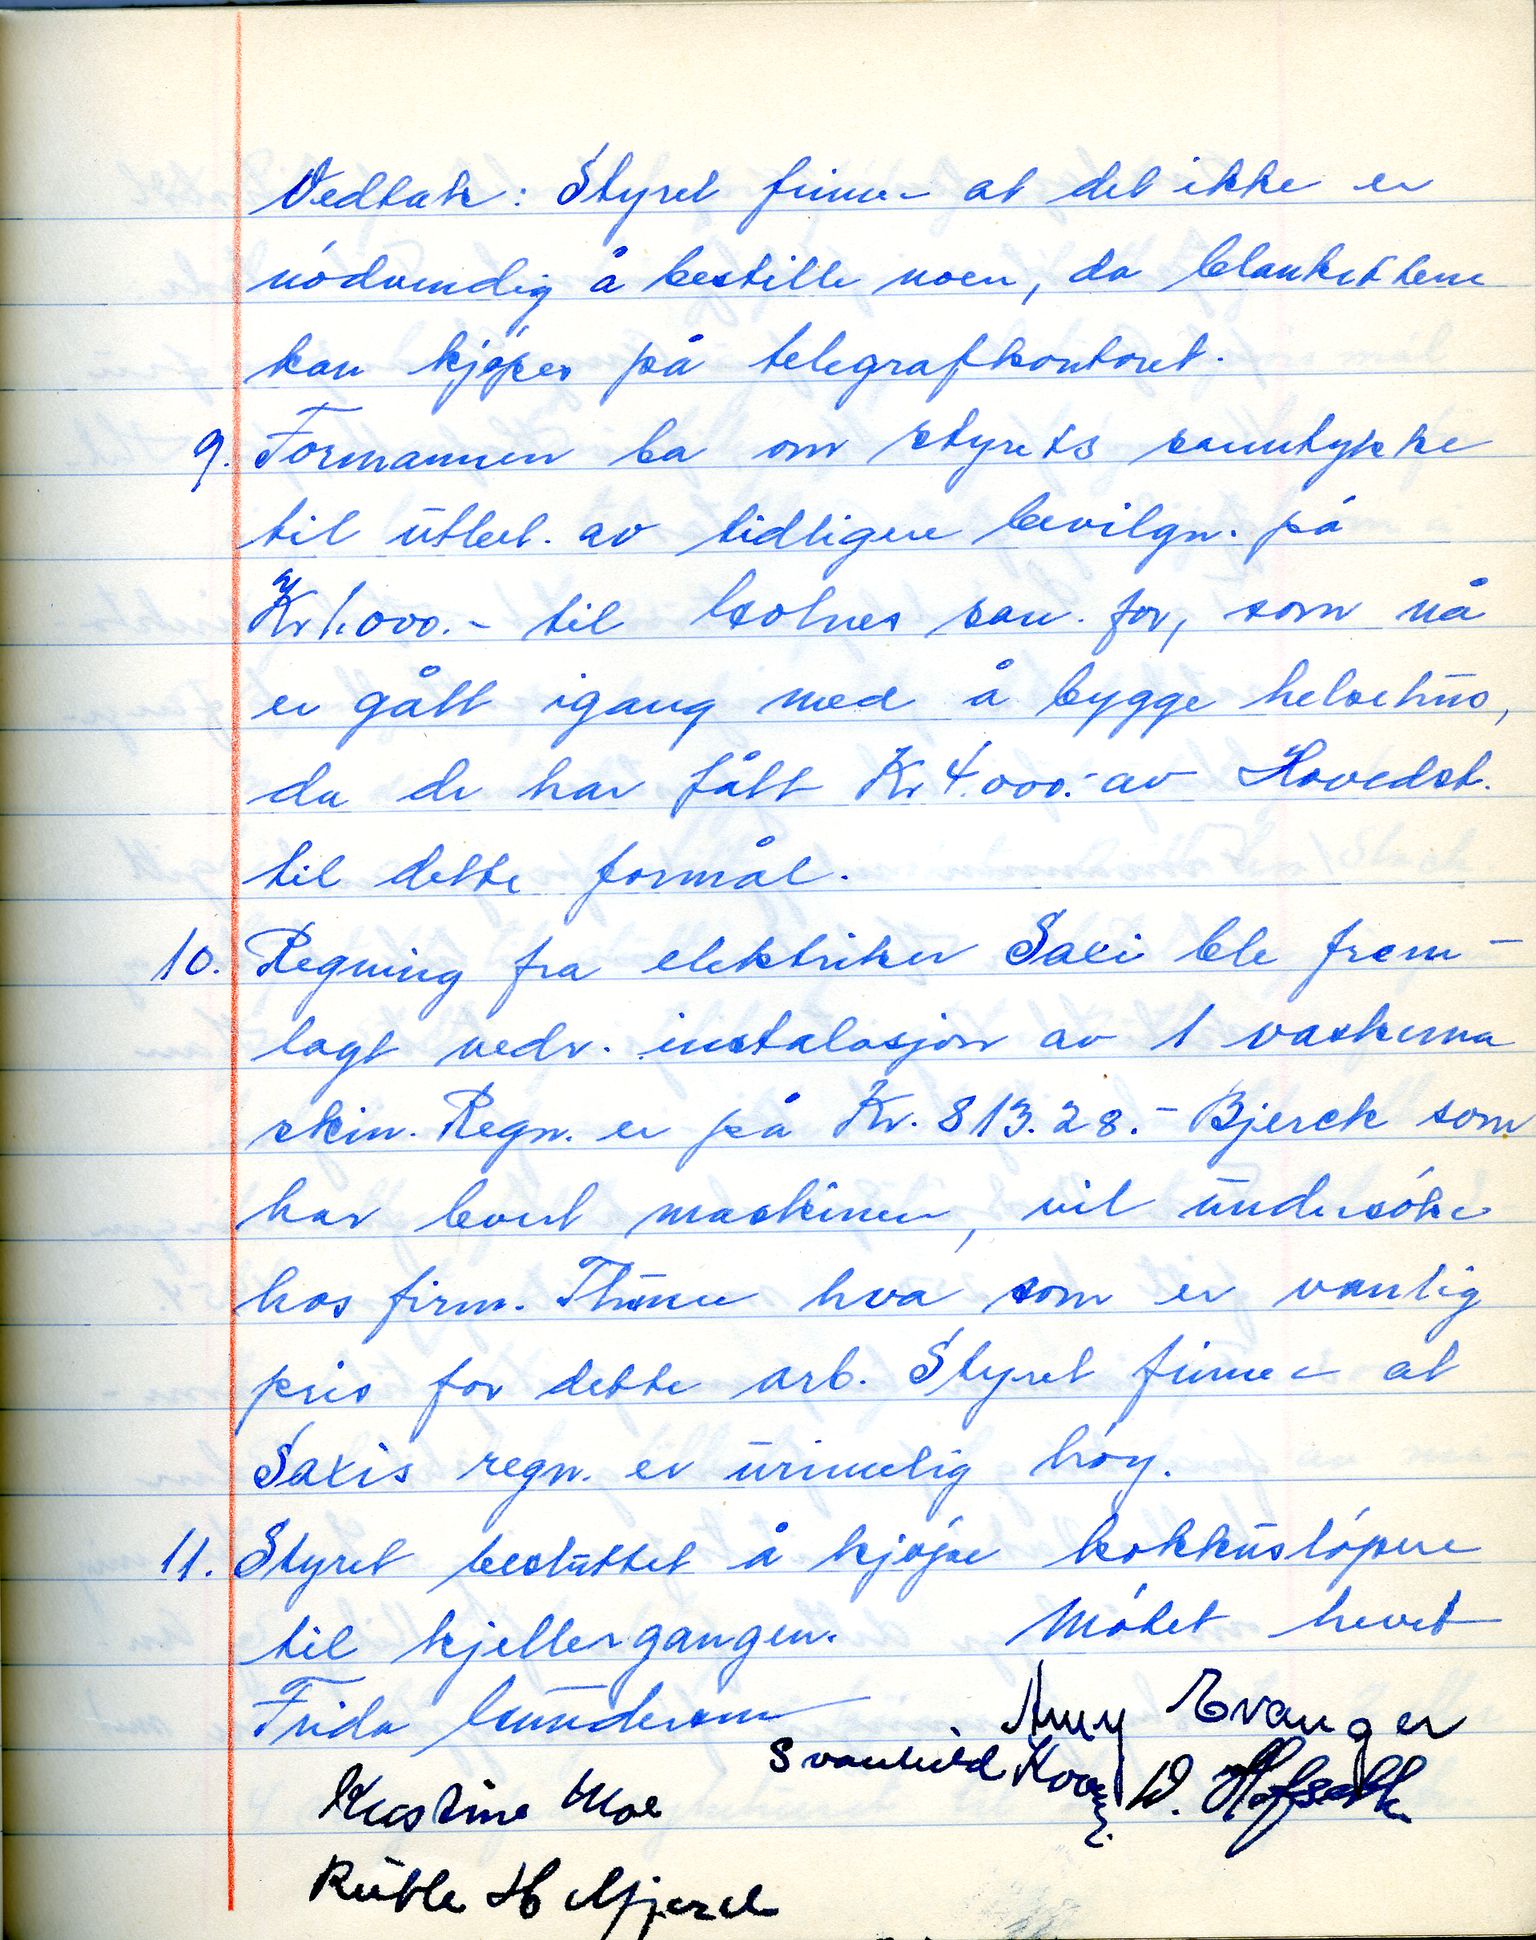 Vedtak: Styret finner at det ikke er
nödvendig å bestille noen, da blankettene
kan kjøpes på telegrafkontoret.
9. Formannen ba om styrets samtykke
til utbet. av tidligere bevilgn. på
Kr 1.000.- til san. for, som nå
er gått igang med å bygge helsehus,
da de har fått Kr 4.000.- av Hovedst.
til dette formål.
10. Regning fra elektriker Saxi ble frem-
lagt vedr. instalasjon av 1 vaskema
skin. Regn. er på Kr. 813.28.- Bjerck som
har levert maskinen, vil undersöke
hos firm. Thune hva som er vanlig
pris for dette arb. Styret finner at
Saxis regn. er urimelig höy.
11. Styret besluttet å kjøpe kokkuslöpere
til kjellergangen. Mötet hevet
Frida Gundersen
Amy Evanger
Svanhild D. Hofseth
Kristine Moe
Ruth H.